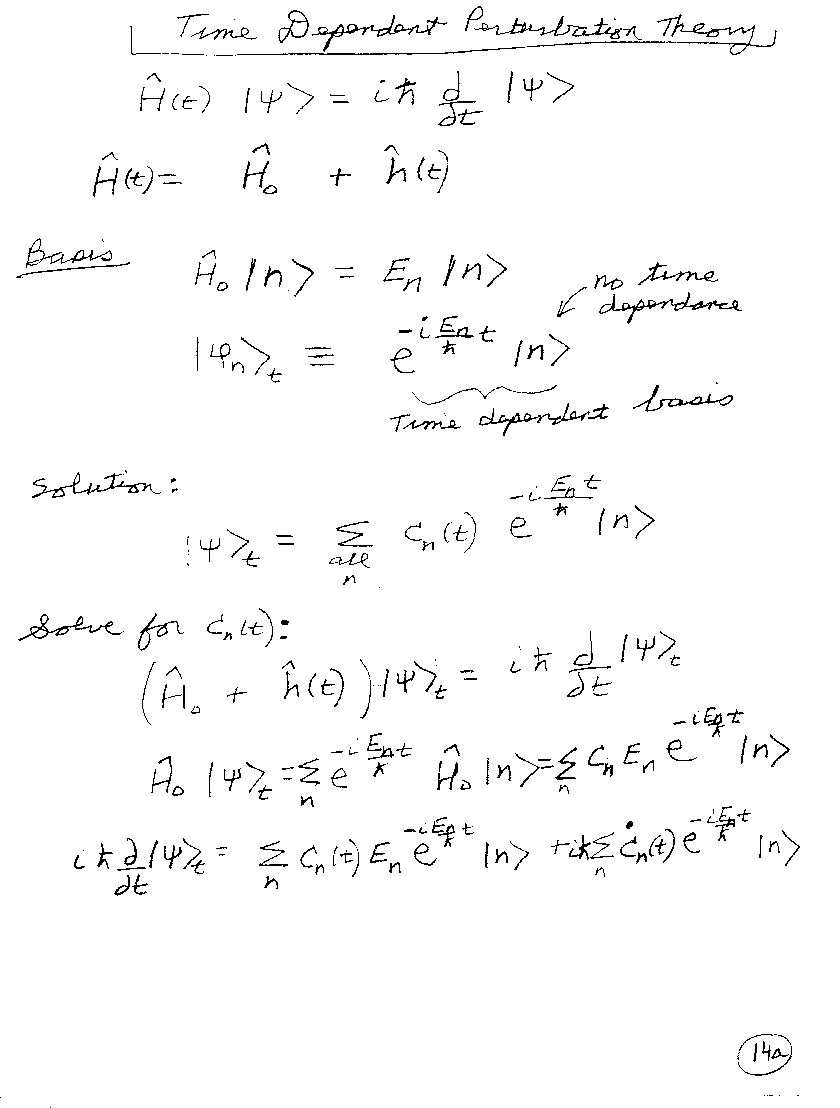 Time Dependent Perturbation Theory
Ĥ(t) |ψ> = iħ d/dt |ψ>
Ĥ(t) = Ĥ₀ + ĥ(t)
Basis Ĥ₀ |n> = Eₙ |n>
no time
dependance
|φₙ>ₜ ≡ e^(-i Eₙt/ħ) |n>
Time dependent basis
Solution:
|ψ>ₜ = Σ_(all n) Cₙ(t) e^(-i Eₙt/ħ) |n>
Solve for Cₙ(t):
(Ĥ₀ + ĥ(t)) |ψ>ₜ = iħ d/dt |ψ>ₜ
Ĥ₀ |ψ>ₜ = Σₙ e^(-i Eₙt/ħ) Ĥ₀ |n> = Σₙ Cₙ Eₙ e^(-i Eₙt/ħ) |n>
iħ ∂/∂t |ψ>ₜ = Σₙ Cₙ(t) Eₙ e^(-i Eₙt/ħ) |n> + iħ Σₙ Ċₙ(t) e^(-i Eₙt/ħ) |n>
14a